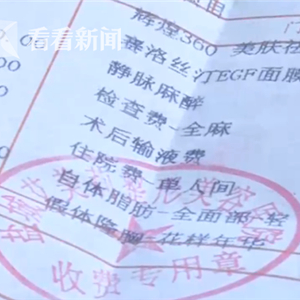 看看新闻
辉煌360 美肤
赛洛丝汀EGF面膜
静脉麻醉
检查费-全麻
术后输液费
住院费 单人间
自体脂肪-全面部-轻
假体隆胸-花样年华
收费专用章